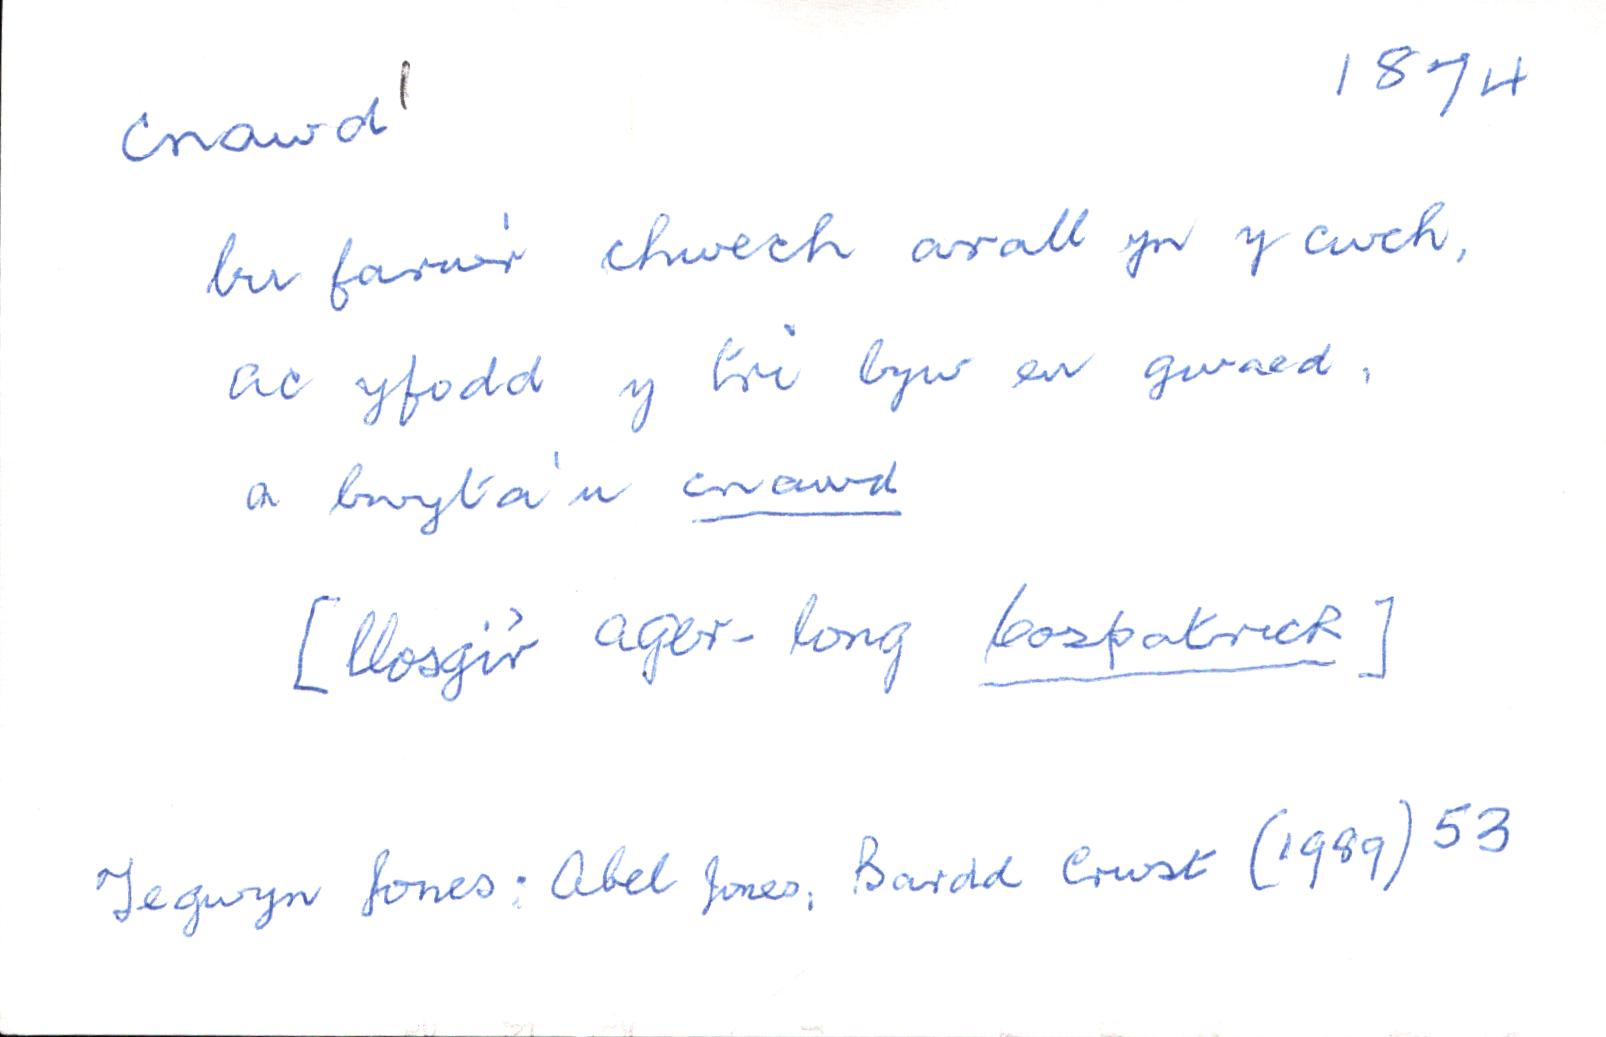 cnawd¹ 1874
bu farw'r chwech arall yn y cwch,
ac yfodd y tri byw eu gwaed,
a bwyta'u cnawd
[llosgi'r ager-long Cospatrick]
Tegwyn Jones: Abel Jones, Bardd Crwst (1989) 53